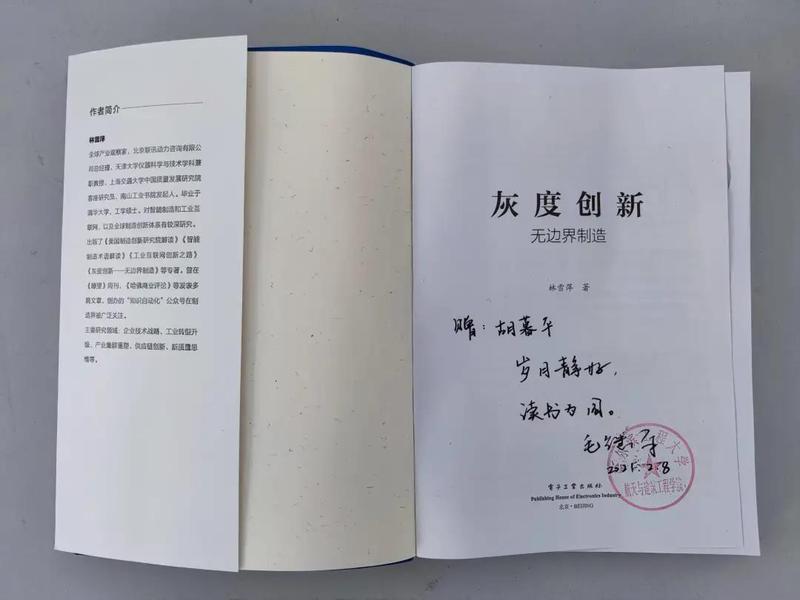 作者简介
林雪萍
全球产业观察家，北京联讯动力咨询有限公
司总经理，天津大学仪器科学与技术学科兼
职教授，上海交通大学中国质量发展研究院
客座研究员，南山工业书院发起人。毕业于
清华大学，工学硕士。对智能制造和工业互
联网，以及全球制造创新体系有较深研究。
出版了《美国制造创新研究院解读》《智能
制造术语解读》《工业互联网创新之路》
《灰度创新——无边界制造》等专著。曾在
《瞭望》周刊、《哈佛商业评论》等发表多
篇文章，创办的“知识自动化”公众号在制
造界被广泛关注。
主要研究领域：企业技术战略、工业转型升
级、产业集群重塑、供应链创新、新质量思
维等。
灰度创新
无边界制造
林雪萍 著
赠：胡慕平
岁月静好，
读书为伴。
毛继平
2025.2.8
工程大学
航天与建筑工程学院
电子工业出版社
Publishing House of Electronics Industry
北京·BEIJING